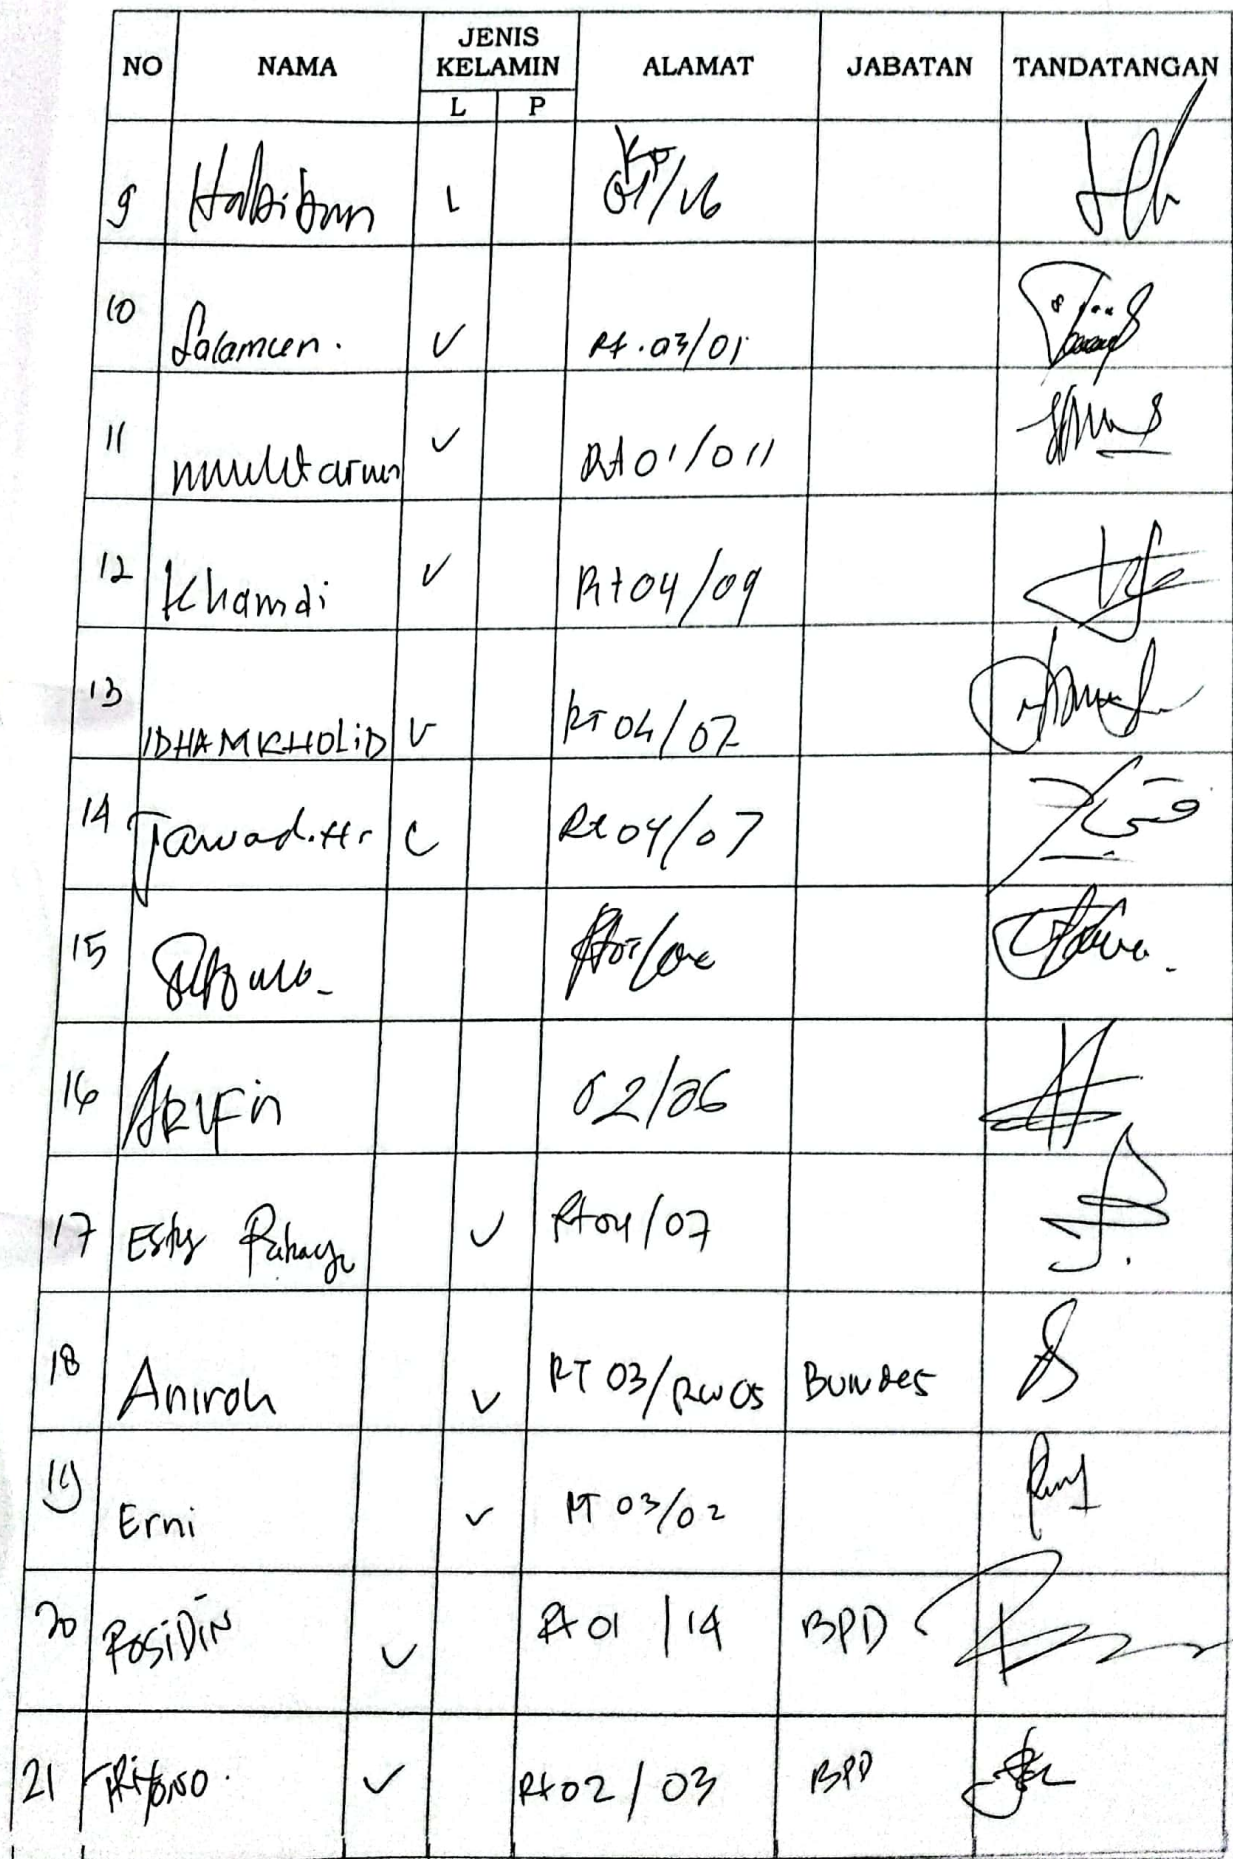 NO NAMA JENIS KELAMIN ALAMAT JABATAN TANDATANGAN
L P
9 L 01/16
10 Salamun. V Rt.03/01
11 V Rt 01/011
12 Khamdi V Rt 04/09
13 IDHAM KHOLiD V RT 04/07
14 Rt 04/07
15
16 ARIFin 02/06
17 Esty Rahayu V Rt 04/07
18 Aniroh V RT 03/RW 05 Bumdes
19 Erni V RT 03/02
20 ROSiDiN V Rt 01 / 14 BPD
21 TRiYONO. V Rt 02 / 03 BPD